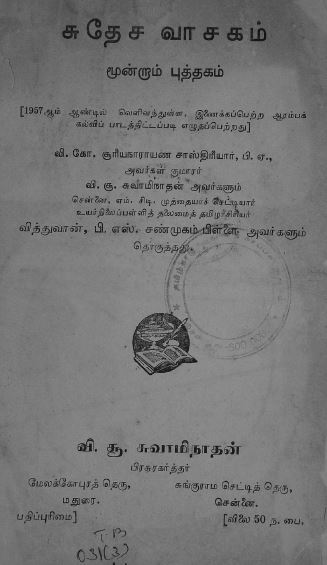 சுதேச வாசகம்
மூன்றாம் புத்தகம்
[1957ஆம் ஆண்டில் வெளிவந்துள்ள, இணைக்கப்பெற்ற ஆரம்பக்
கல்விப் பாடத்திட்டப்படி எழுதப்பெற்றது]
வி. கோ. சூரியநாராயண சாஸ்திரியார், பி. ஏ.,
அவர்கள் குமாரர்
வி. சூ. சுவாமிநாதன் அவர்களும்
சென்னை, எம். சிடி. முத்தையாச் செட்டியார்
உயர்நிலைப்பள்ளித் தலைமைத் தமிழாசிரியர்
வித்துவான், பி. எஸ். சண்முகம் பிள்ளை அவர்களும்
தொகுத்தது.
வி. சூ. சுவாமிநாதன்
பிரசுரகர்த்தர்
மேலக்கோபுரத் தெரு, சுங்குராம செட்டித் தெரு,
மதுரை. சென்னை.
பதிப்புரிமை] [விலை 50 ந. பை.
T.B
031(3)